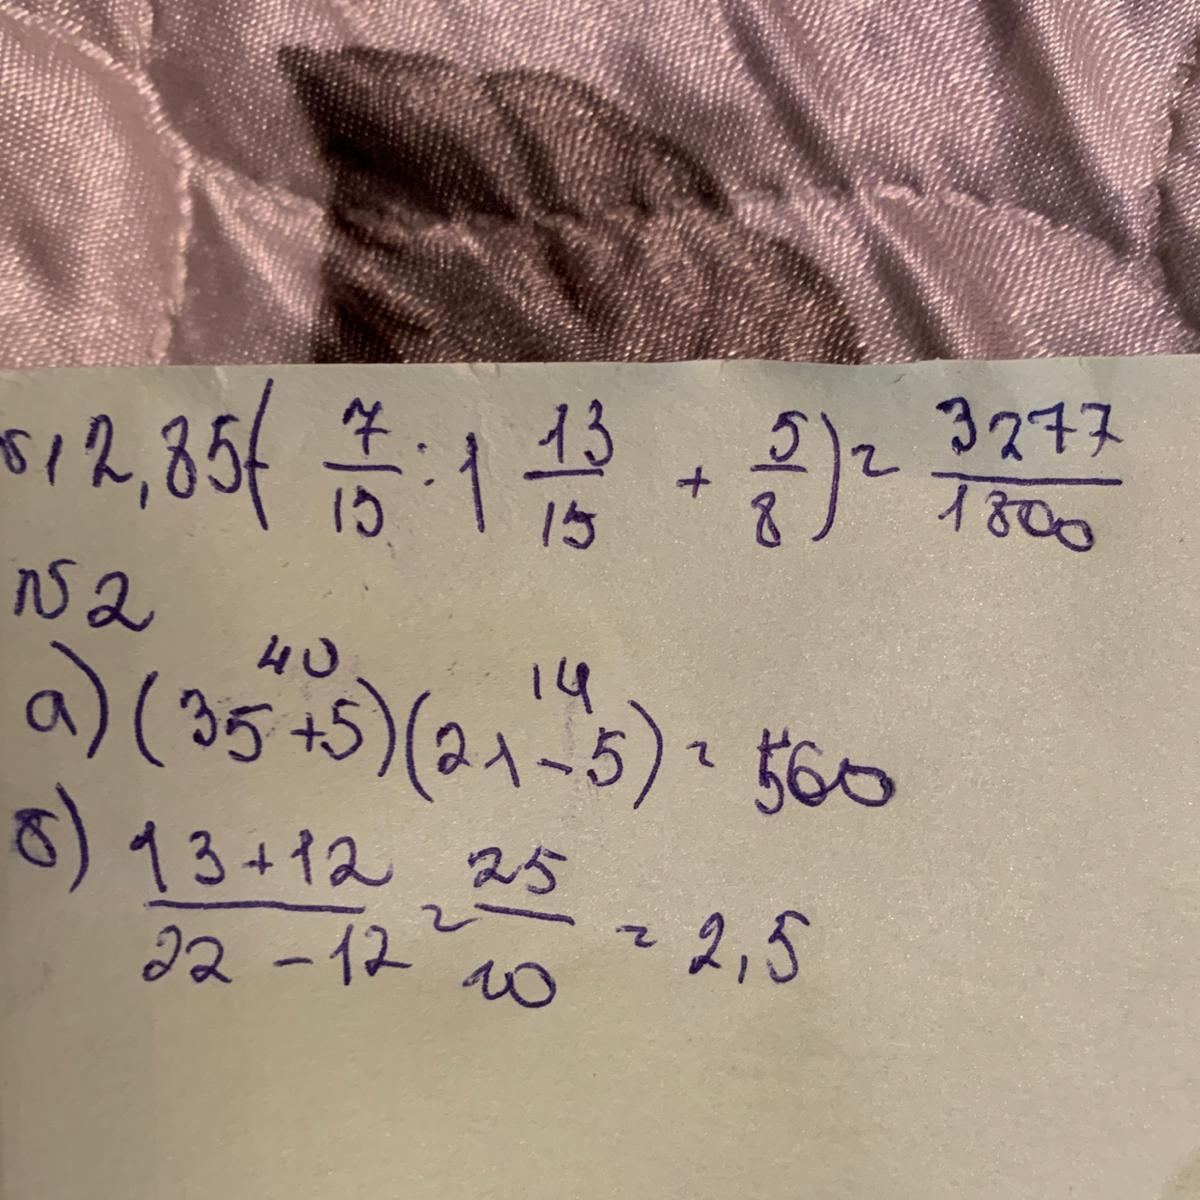 №1 2,85(7/15 : 1 13/15 + 5/8) = 3277/1800
№2
40 14
а) (35+5)(21-5) = 560
б) 13+12/22-12 = 25/10 = 2,5